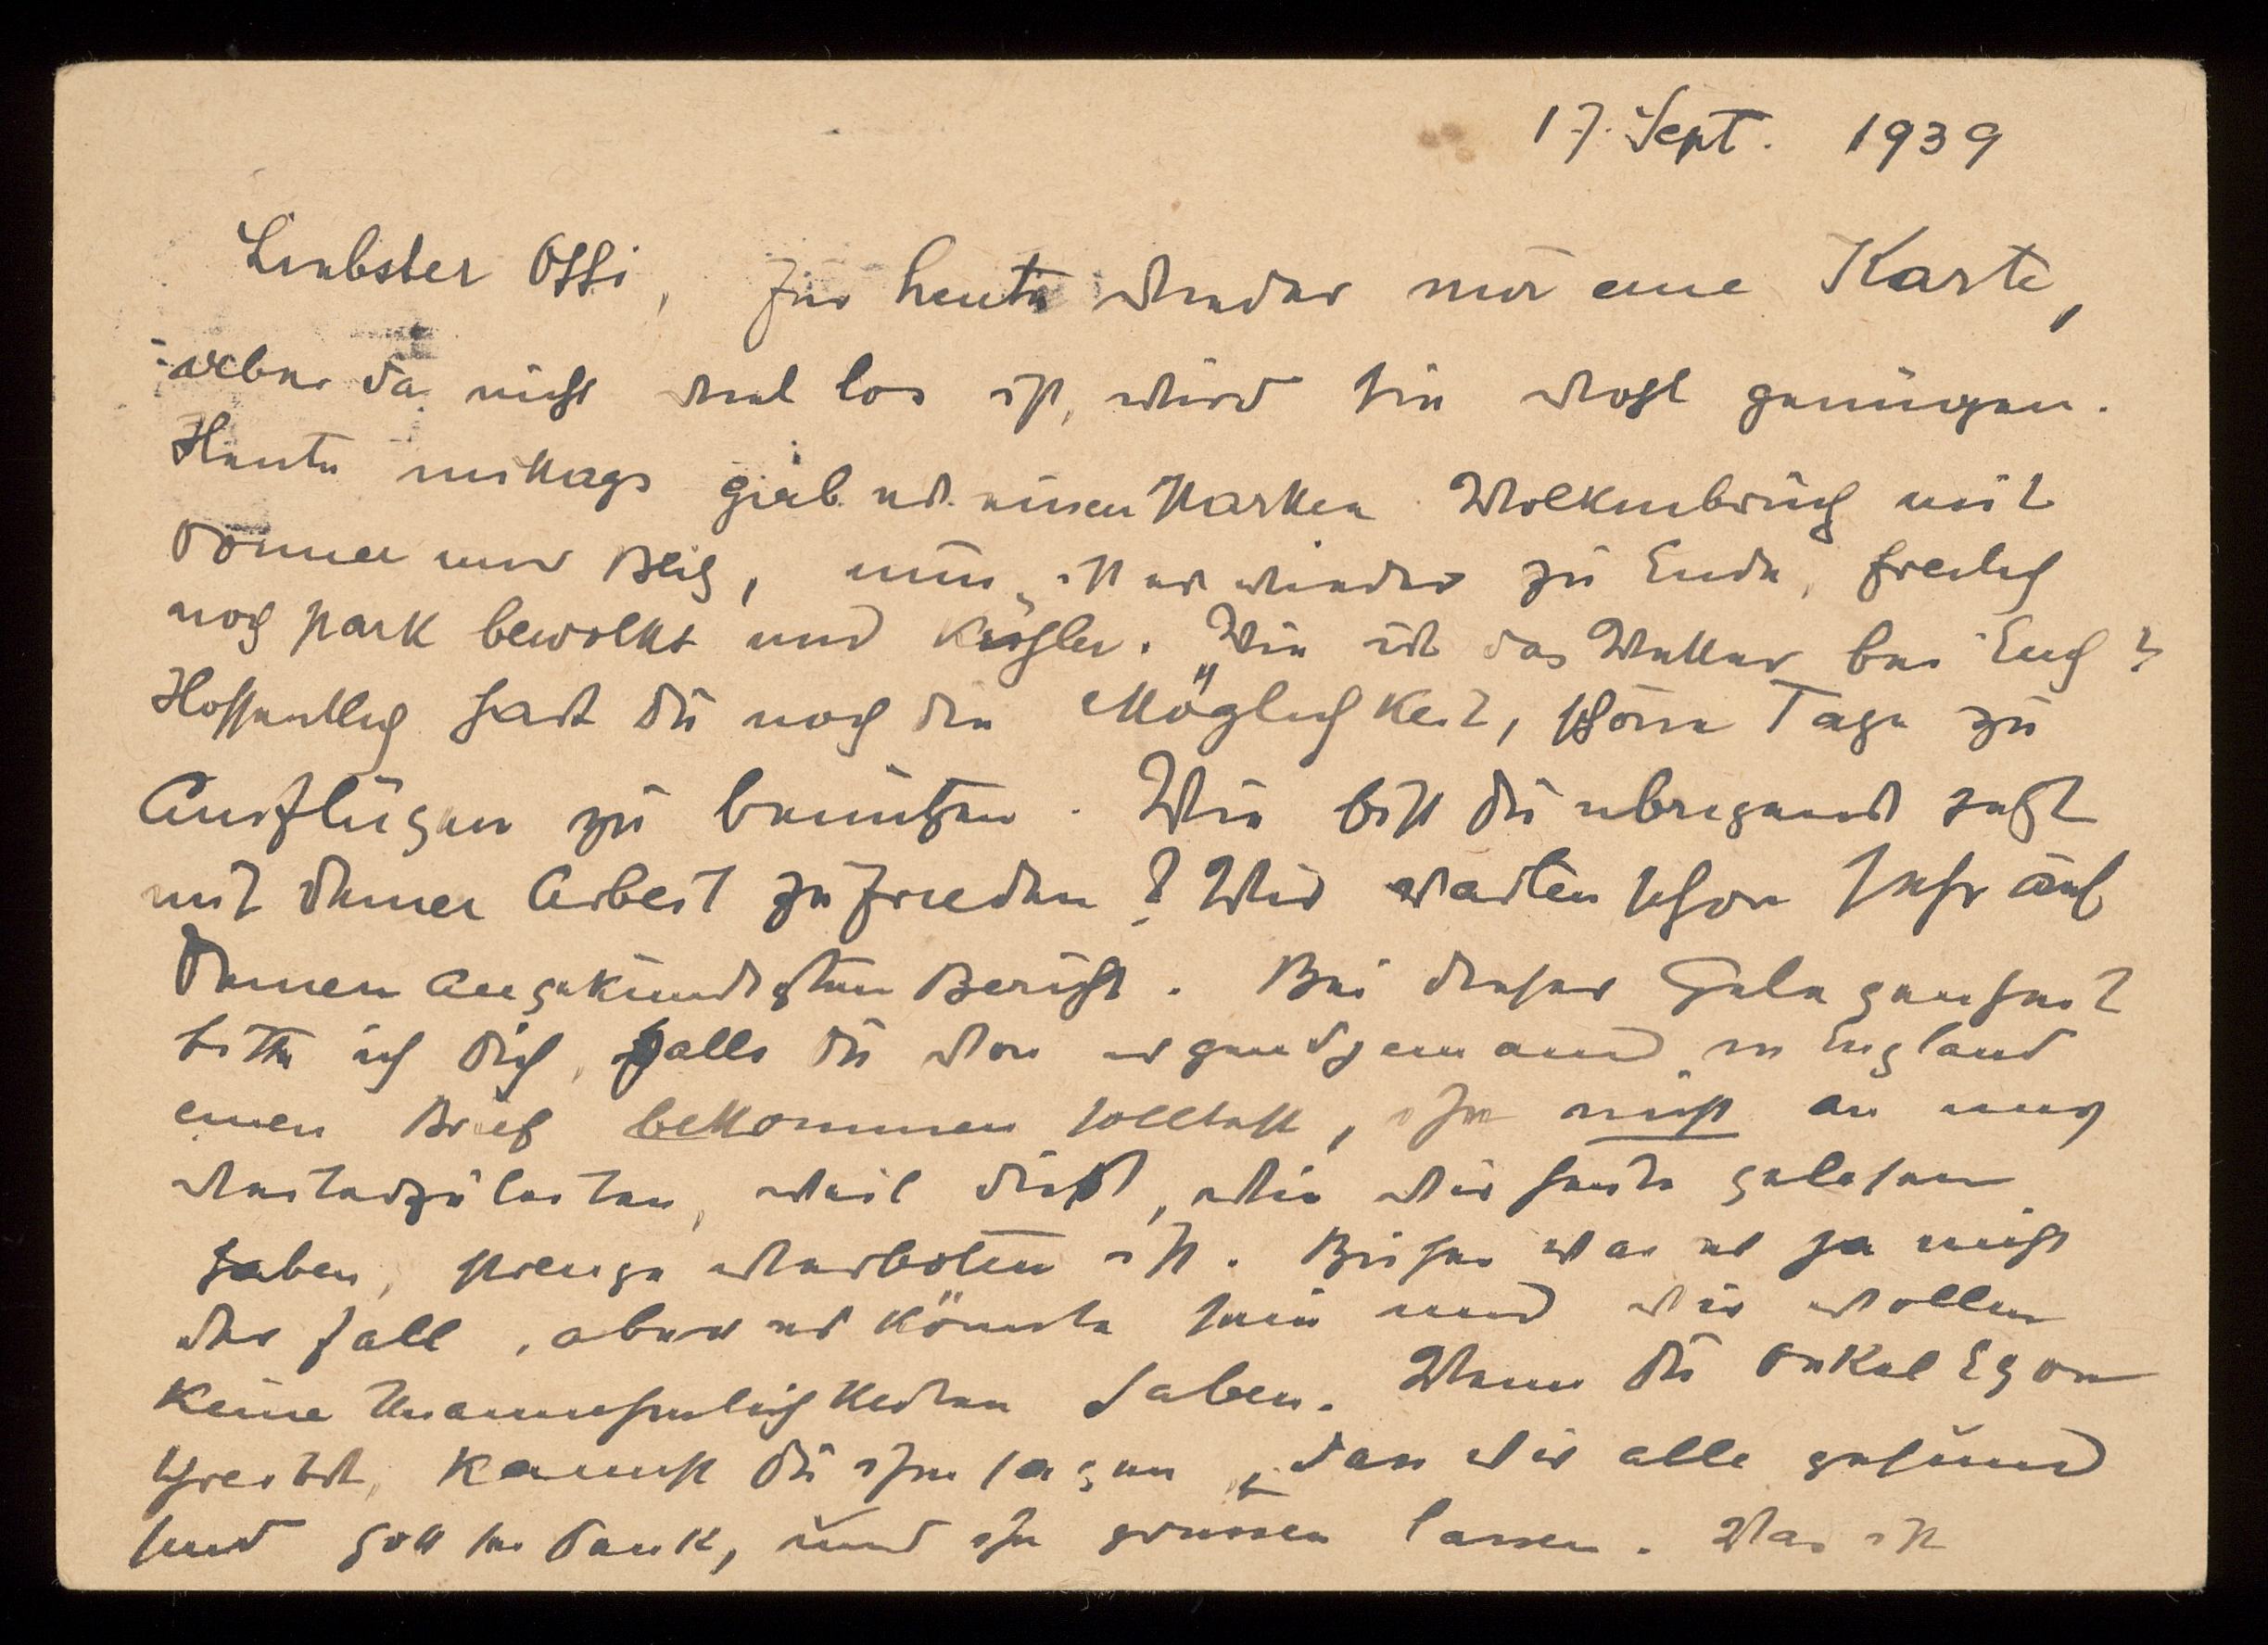 17. Sept. 1939
Liebster Ossi, für heute wieder nur eine Karte,
aber da nicht viel los ist, wird sie wohl genügen.
Heute mittags gab es einen starken Wolkenbruch mit
Donner und Blitz, nun ist es wieder zu Ende, freilich
noch stark bewölkt und kühler. Wie ist das Wetter bei Euch?
Hoffentlich hast Du noch die Möglichkeit, schöne Tage zu
Ausflügen zu benützen. Wie bist Du übrigens jetzt
mit Deiner Arbeit zufrieden? Wir warten schon sehr auf
Deinen angekündigten Bericht. Bei dieser Gelegenheit
bitte ich Dich, falls Du von irgendjemand in England
einen Brief bekommen solltest, ihn nicht an uns
weiterzuleiten, weil dies, wie wir heute gelesen
haben, strenge verboten ist. Bisher war es ja nicht
der Fall, aber es könnte sein und wir wollen
keine Unannehmlichkeiten haben. Wenn Du Onkel Egon
schreibst, kannst Du ihm sagen, dass wir alle gesund
sind Gott sei Dank, und ihn grüssen lassen. Was ist